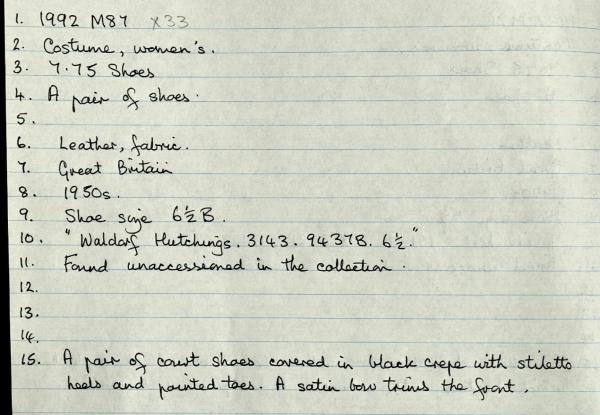 1. 1992 M87 X33
2. Costume, women's.
3. 7.75 Shoes
4. A pair of shoes.
5.
6. Leather, fabric.
7. Great Britain
8. 1950s.
9. Shoe size 6½ B.
10. "Waldorf Hutchings. 3143. 9437B. 6½."
11. Found unaccessioned in the collection.
12.
13.
14.
15. A pair of court shoes covered in black crepe with stiletto
heels and pointed toes. A satin bow trims the front.